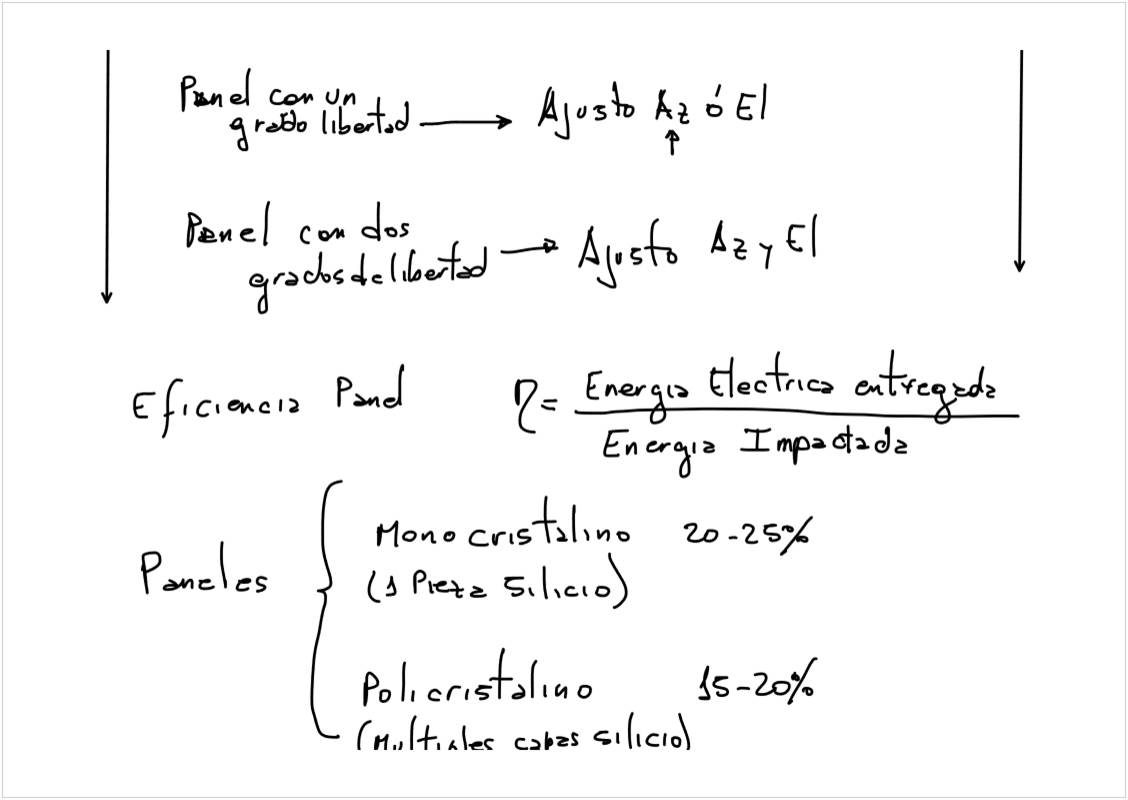 Panel con un
grado libertad → Ajusto Az ó El
↑
Panel con dos
grados de libertad → Ajusto Az y El
Eficiencia Panel η = Energia Electrica entregada
Energia Impactada
Monocristalino 20-25%
Paneles { (1 Pieza Silicio)
Policristalino 15-20%
(Multiples capas silicio)